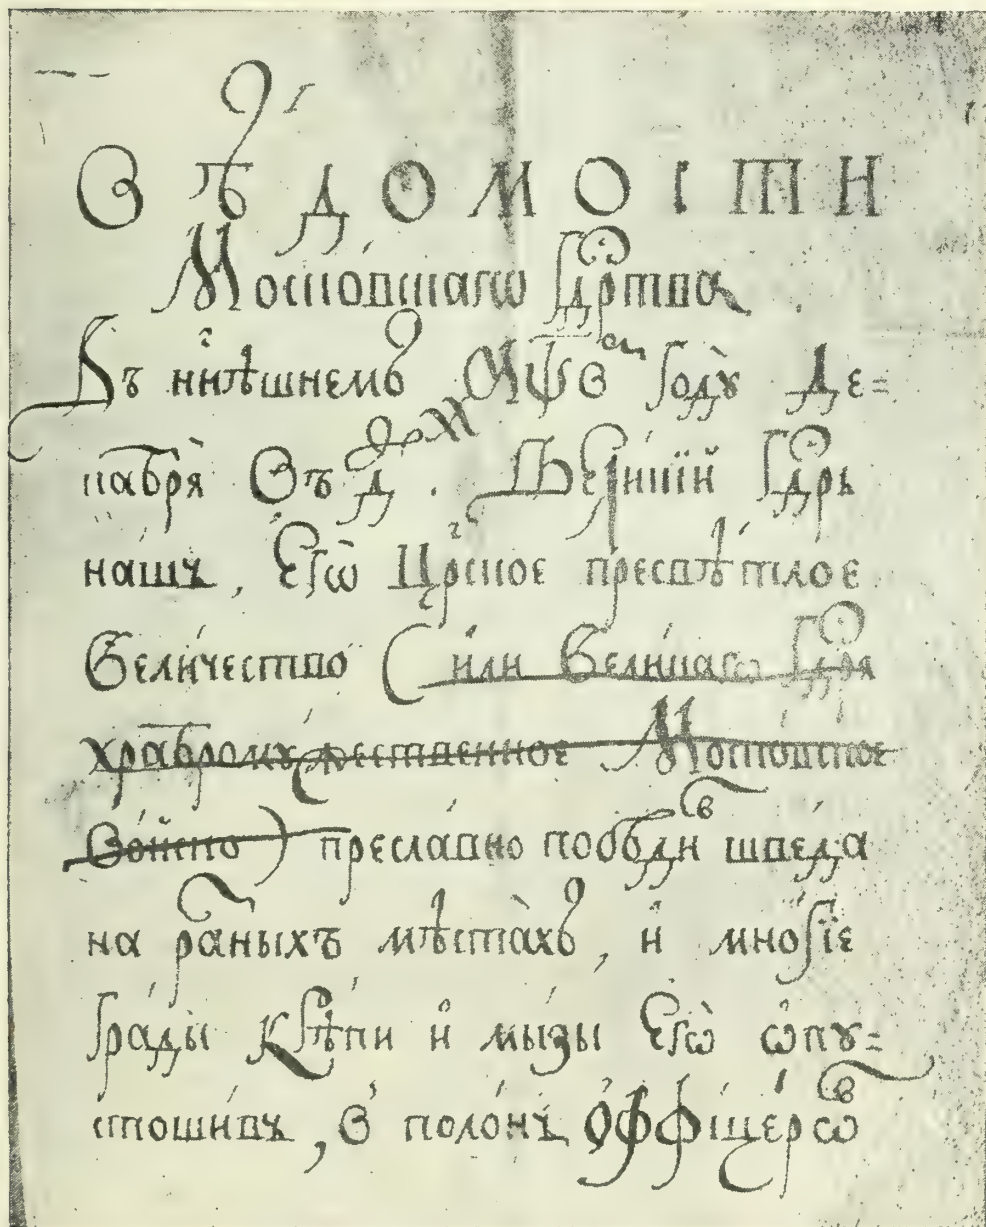 ВѢДОМОСТИ
Московскагѡ Гдⷭ҇рства
Въ нн҃ѣшнемъ ҂аѱв году Де=
кабря̀ въ д҃ . Великїй Гдⷭ҇рь
нашъ, Егѡ̀ Црⷭ҇кое пресвѣ́тлое
Вели́чество (и҆ли Вели́кагѡ Гдⷭ҇ря
храбромꙋ́жественное Моско́вское
Во́йско) пресла́вно побѣди́въ шве́да
на ра́зныхъ мѣста̀хъ, и҆ мно́гїе
гра́ды и҆ мы́зы Егѡ̀ ѡ҆пꙋ=
стоши́въ, в поло́нъ о҆ффїце́рѡвъ